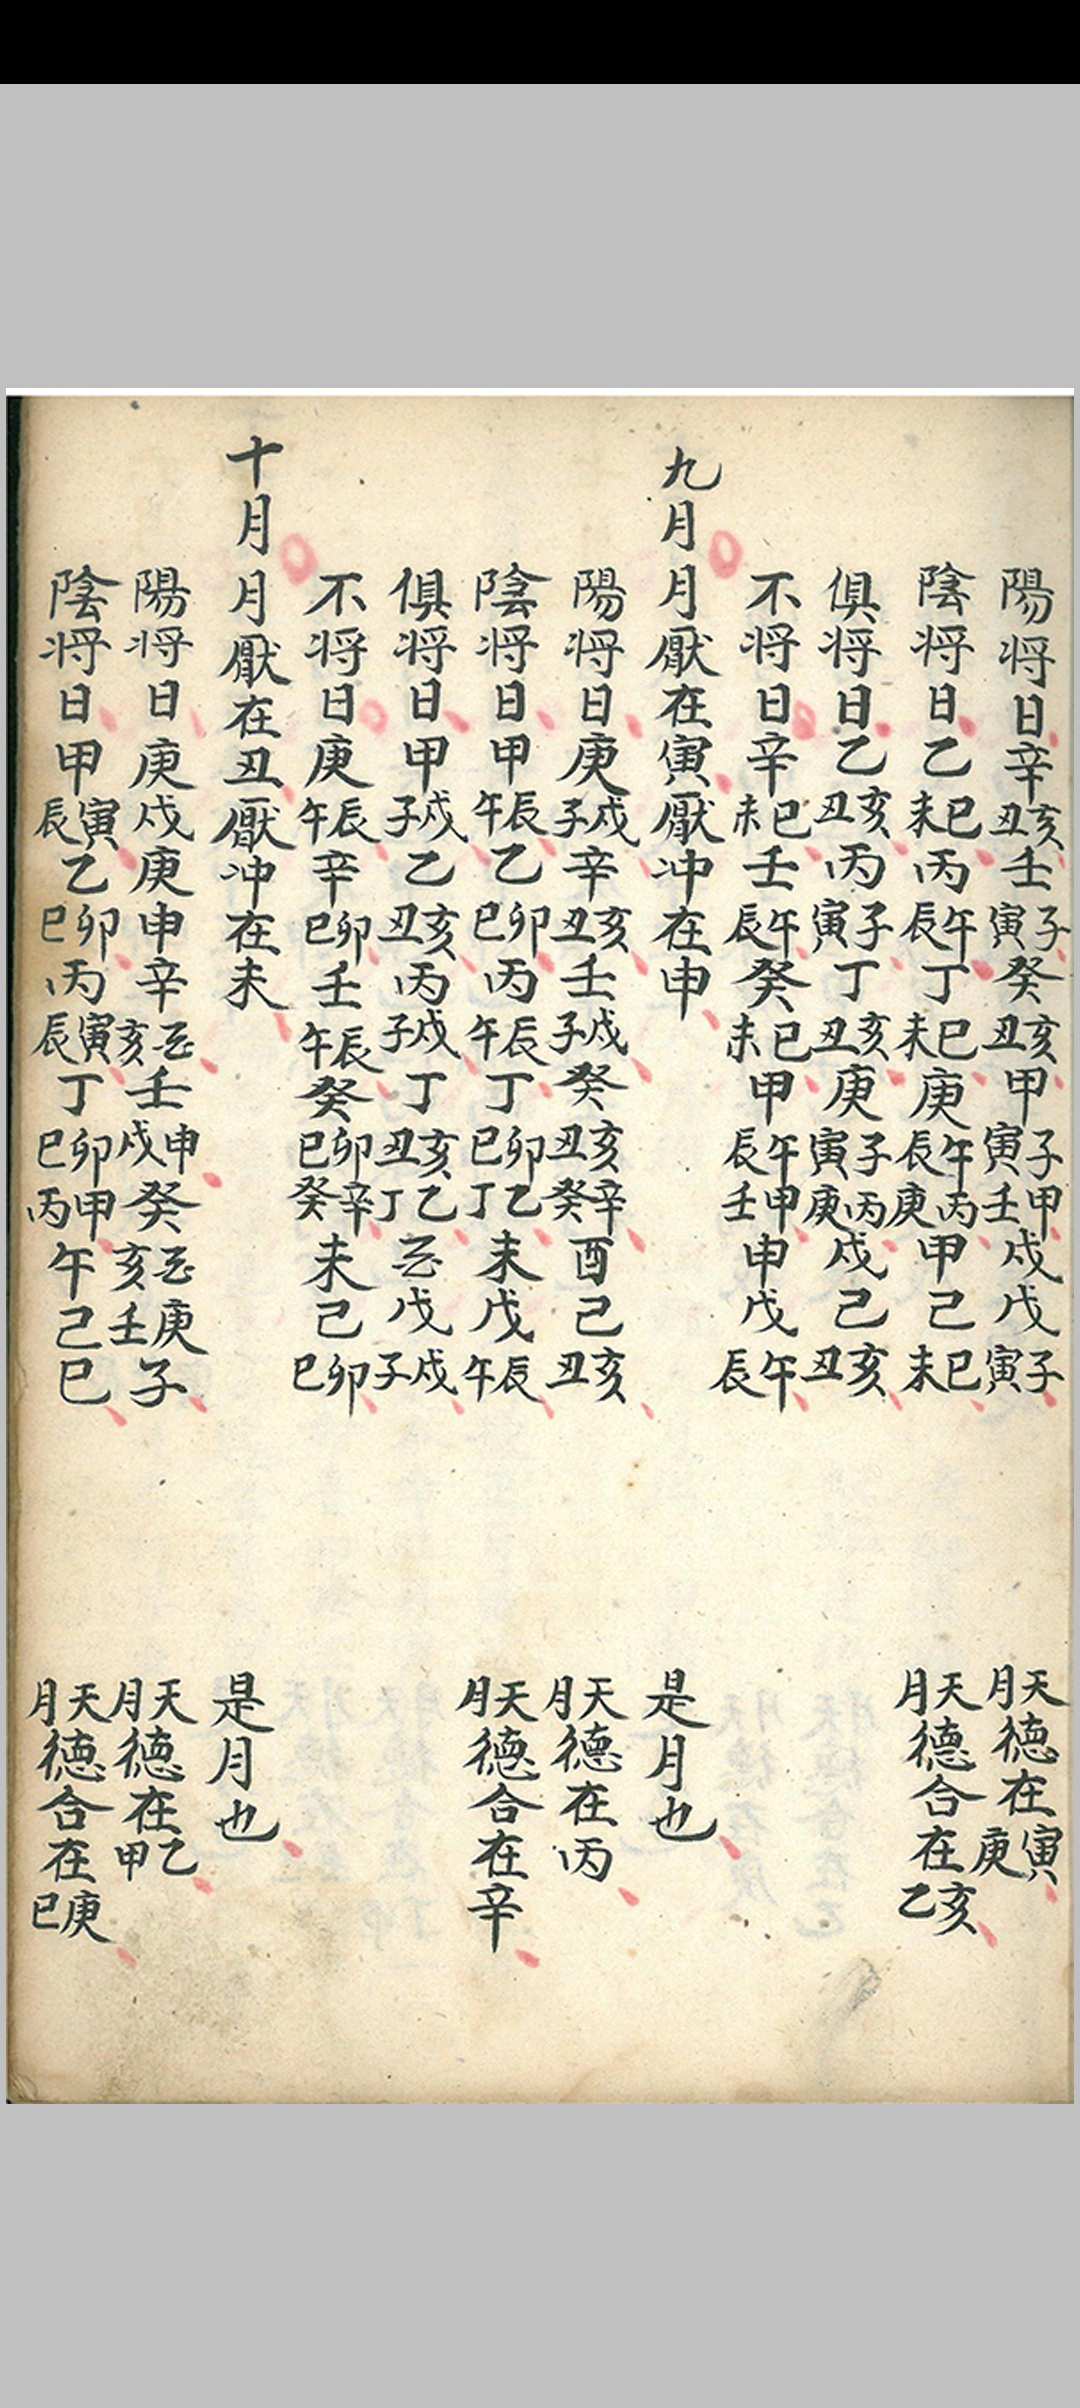 陽将日辛亥丑壬子寅癸亥丑甲子寅甲壬戌戊子寅
天月德在寅庚
陰将日乙巳未丙午辰丁巳未庚午辰丙庚甲己巳未
天月德合在亥乙
俱将日乙亥丑丙子寅丁亥丑庚子寅丙庚戌己亥丑
不将日辛巳未壬午辰癸巳未甲午辰甲壬申戊午辰
九月
月厭在寅厭冲在申
是月也
陽将日庚戌子辛亥丑壬戌子癸亥丑辛癸酉己亥丑
天月德在丙
陰将日甲辰午乙卯巳丙辰午丁卯巳乙丁未戊辰午
天月德合在辛
俱将日甲戌子乙亥丑丙戌子丁亥丑乙丁丣戊戌子
不将日庚辰午辛卯巳壬辰午癸卯巳辛癸未己卯巳
十月
月厭在丑厭冲在未
是月也
陽将日庚戌庚申辛丣亥壬申戌癸丣亥庚壬子
天月德在乙甲
陰将日甲寅辰乙卯巳丙寅辰丁卯巳甲丙午己巳
天月德合在庚己